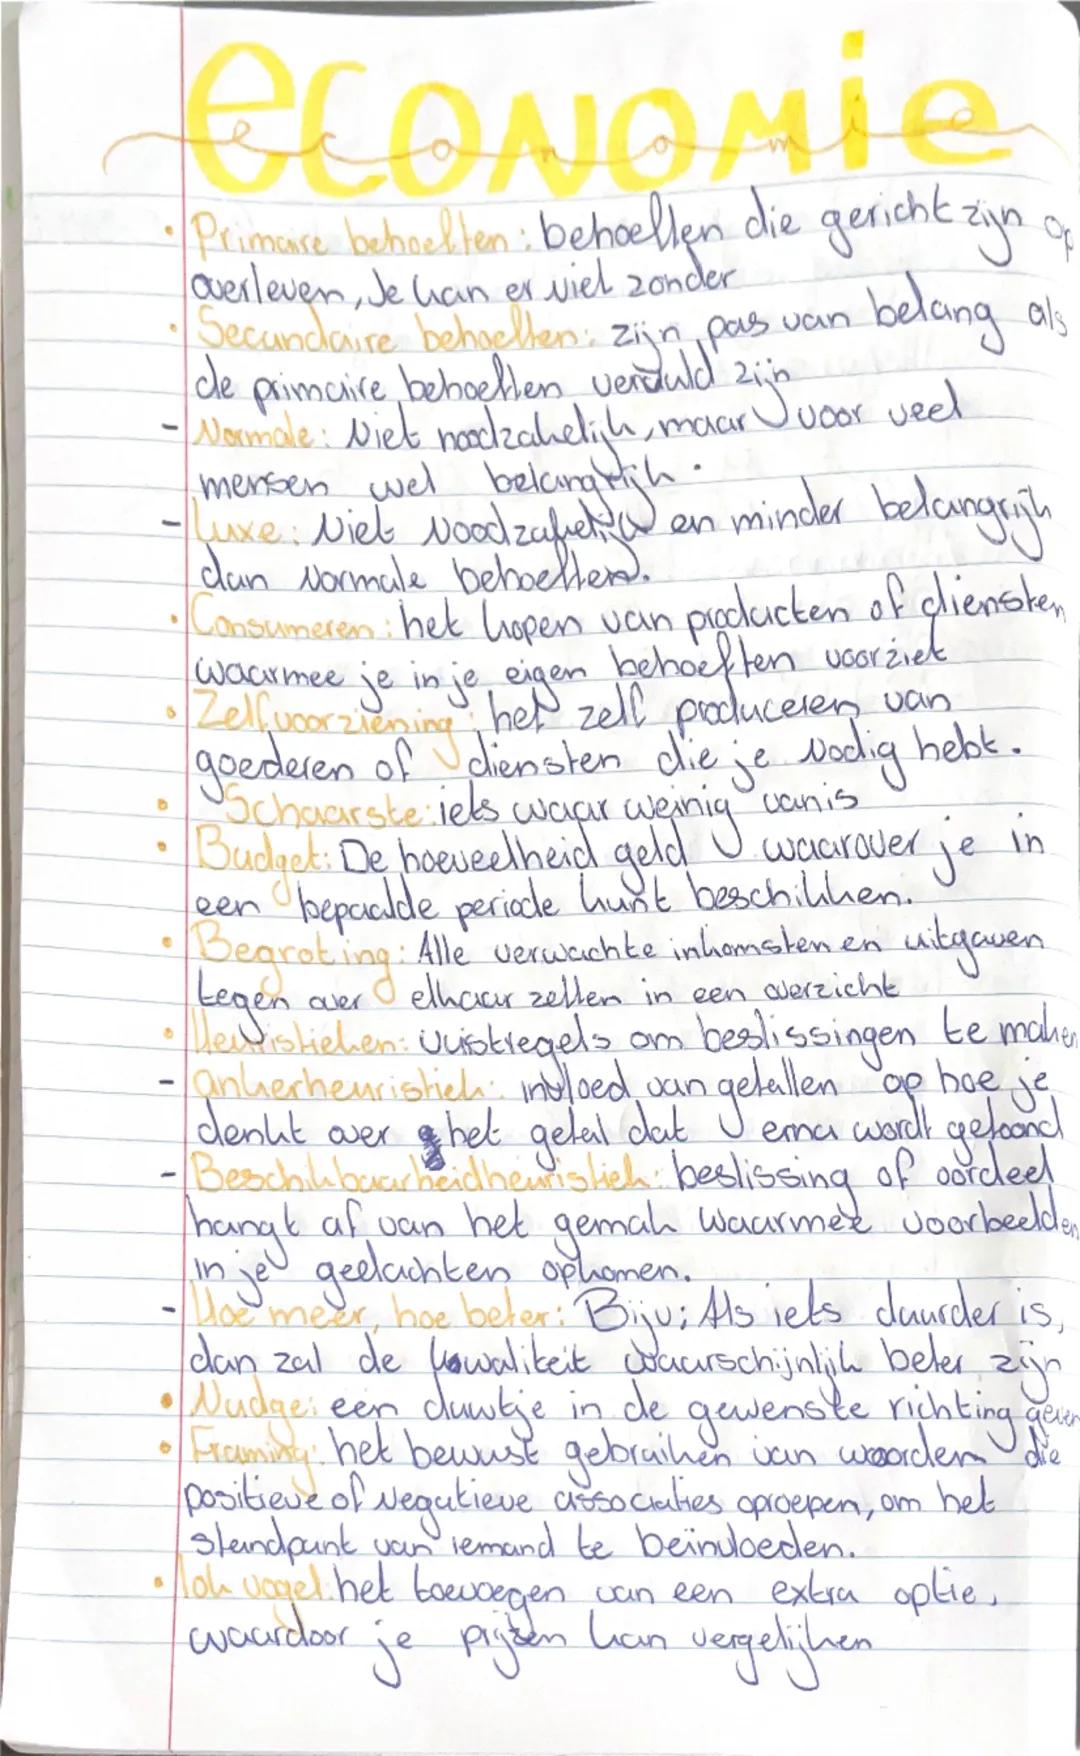 economie
economie
• Primaire behoeften: behoeften die gericht zijn op
overleven, Je kan er niet zonder
• Secundaire behoeften: zijn pas van belang als
de primaire behoeften vervuld zijn
- Normale: Niet noodzakelijk, maar voor veel
mensen wel belangrijk.
- Luxe: Niet Noodzakelijk en minder belangrijk
dan Normale behoeften.
• Consumeren: het kopen van producten of diensten
waarmee je in je eigen behoeften voorziet
• Zelfvoorziening: het zelf produceren van
goederen of diensten die je Nodig hebt.
• Schaarste: iets waar weinig van is
• Budget: De hoeveelheid geld waarover je in
een bepaalde periode kunt beschikken.
• Begroting: Alle verwachte inkomsten en uitgaven
tegen over elkaar zetten in een overzicht
• Heuristieken: vuistregels om beslissingen te maken
- ankerheuristiek: invloed van getallen op hoe je
denkt over het getal dat erna wordt getoond
- Beschikbaarheidheuristiek: beslissing of oordeel
hangt af van het gemak waarmee voorbeelden
in je gedachten opkomen.
- Hoe meer, hoe beter: Bijv: Als iets duurder is,
dan zal de kwaliteit waarschijnlijk beter zijn
• Nudge: een duwtje in de gewenste richting geven
• Framing: het bewust gebruiken van woorden die
positieve of Negatieve associaties oproepen, om het
standpunt van iemand te beïnvloeden.
• lok vogel: het toevoegen van een extra optie,
waardoor je prijzen kan vergelijken